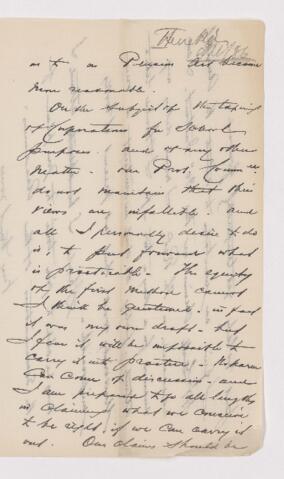 as to a Premium
more reasonable.
On the subject of the taxing
of Corporations for School
purposes, and of any other
matter - our Prot. Comm'ee
do not maintain that their
views are infallible. and
all I personally desire to do
is, to put forward what
is practicable - The equity
of the first method cannot
I think be questioned - in fact
it was my own draft - but
I fear it will be impossible to
carry it into practice - No harm
can come of discussion - and
I am prepared to go all lengths
in claiming what we conceive
to be right, if we can carry it
out. Our claims should be